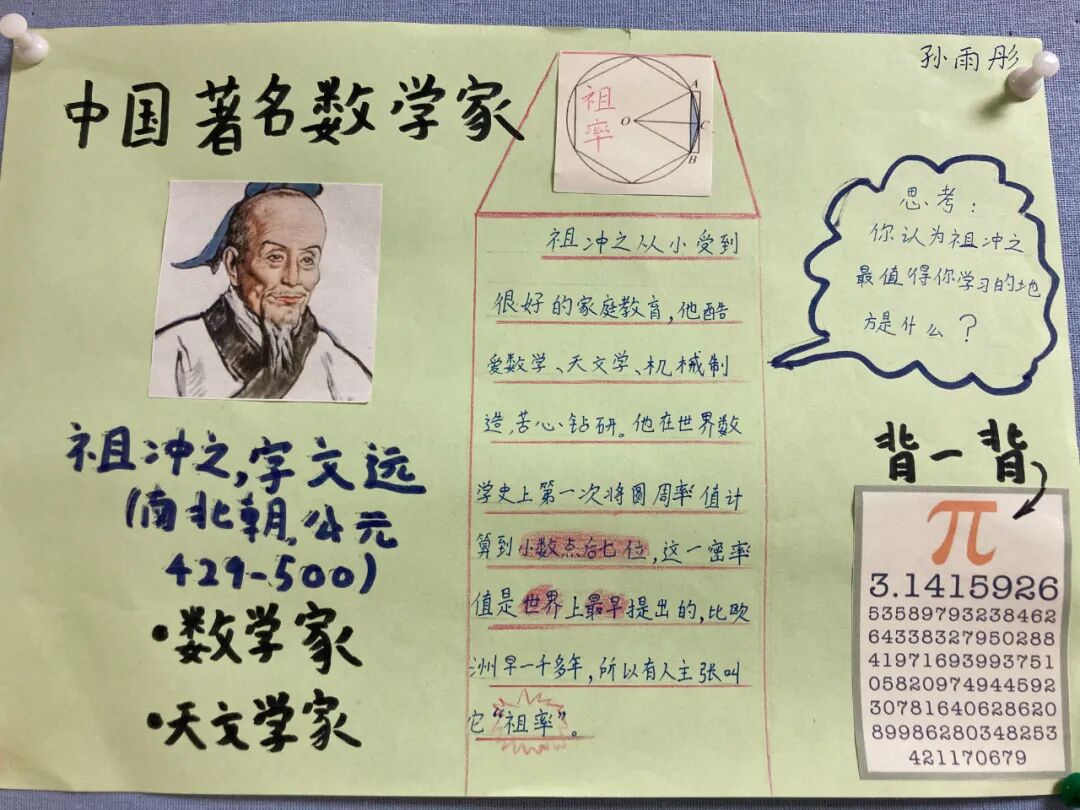 孙雨彤
中国著名数学家
祖冲之,字文远
(南北朝.公元
429-500)
·数学家
·天文学家
祖
率
A
O
C
B
祖冲之从小受到
很好的家庭教育,他酷
爱数学、天文学、机械制
造,苦心钻研。他在世界数
学史上第一次将圆周率值计
算到小数点后七位,这一密率
值是世界上最早提出的,比欧
洲早一千多年,所以有人主张叫
它“祖率”。
思考:
你认为祖冲之
最值得你学习的地
方是什么?
背一背
π
3.1415926
53589793238462
64338327950288
41971693993751
05820974944592
30781640628620
89986280348253
421170679